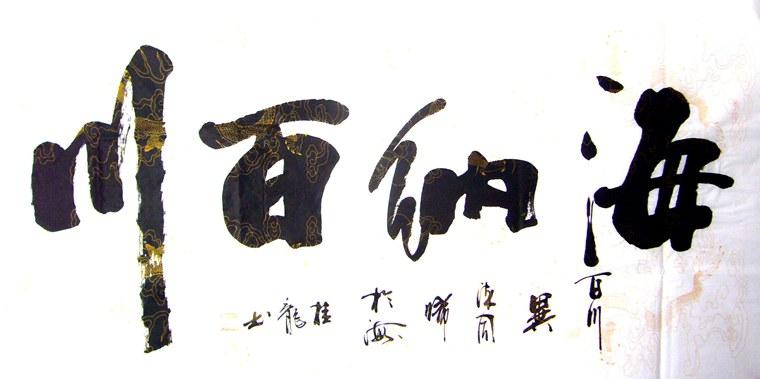 海納百川
百川
異
源同
歸
於海
桂
龍
书